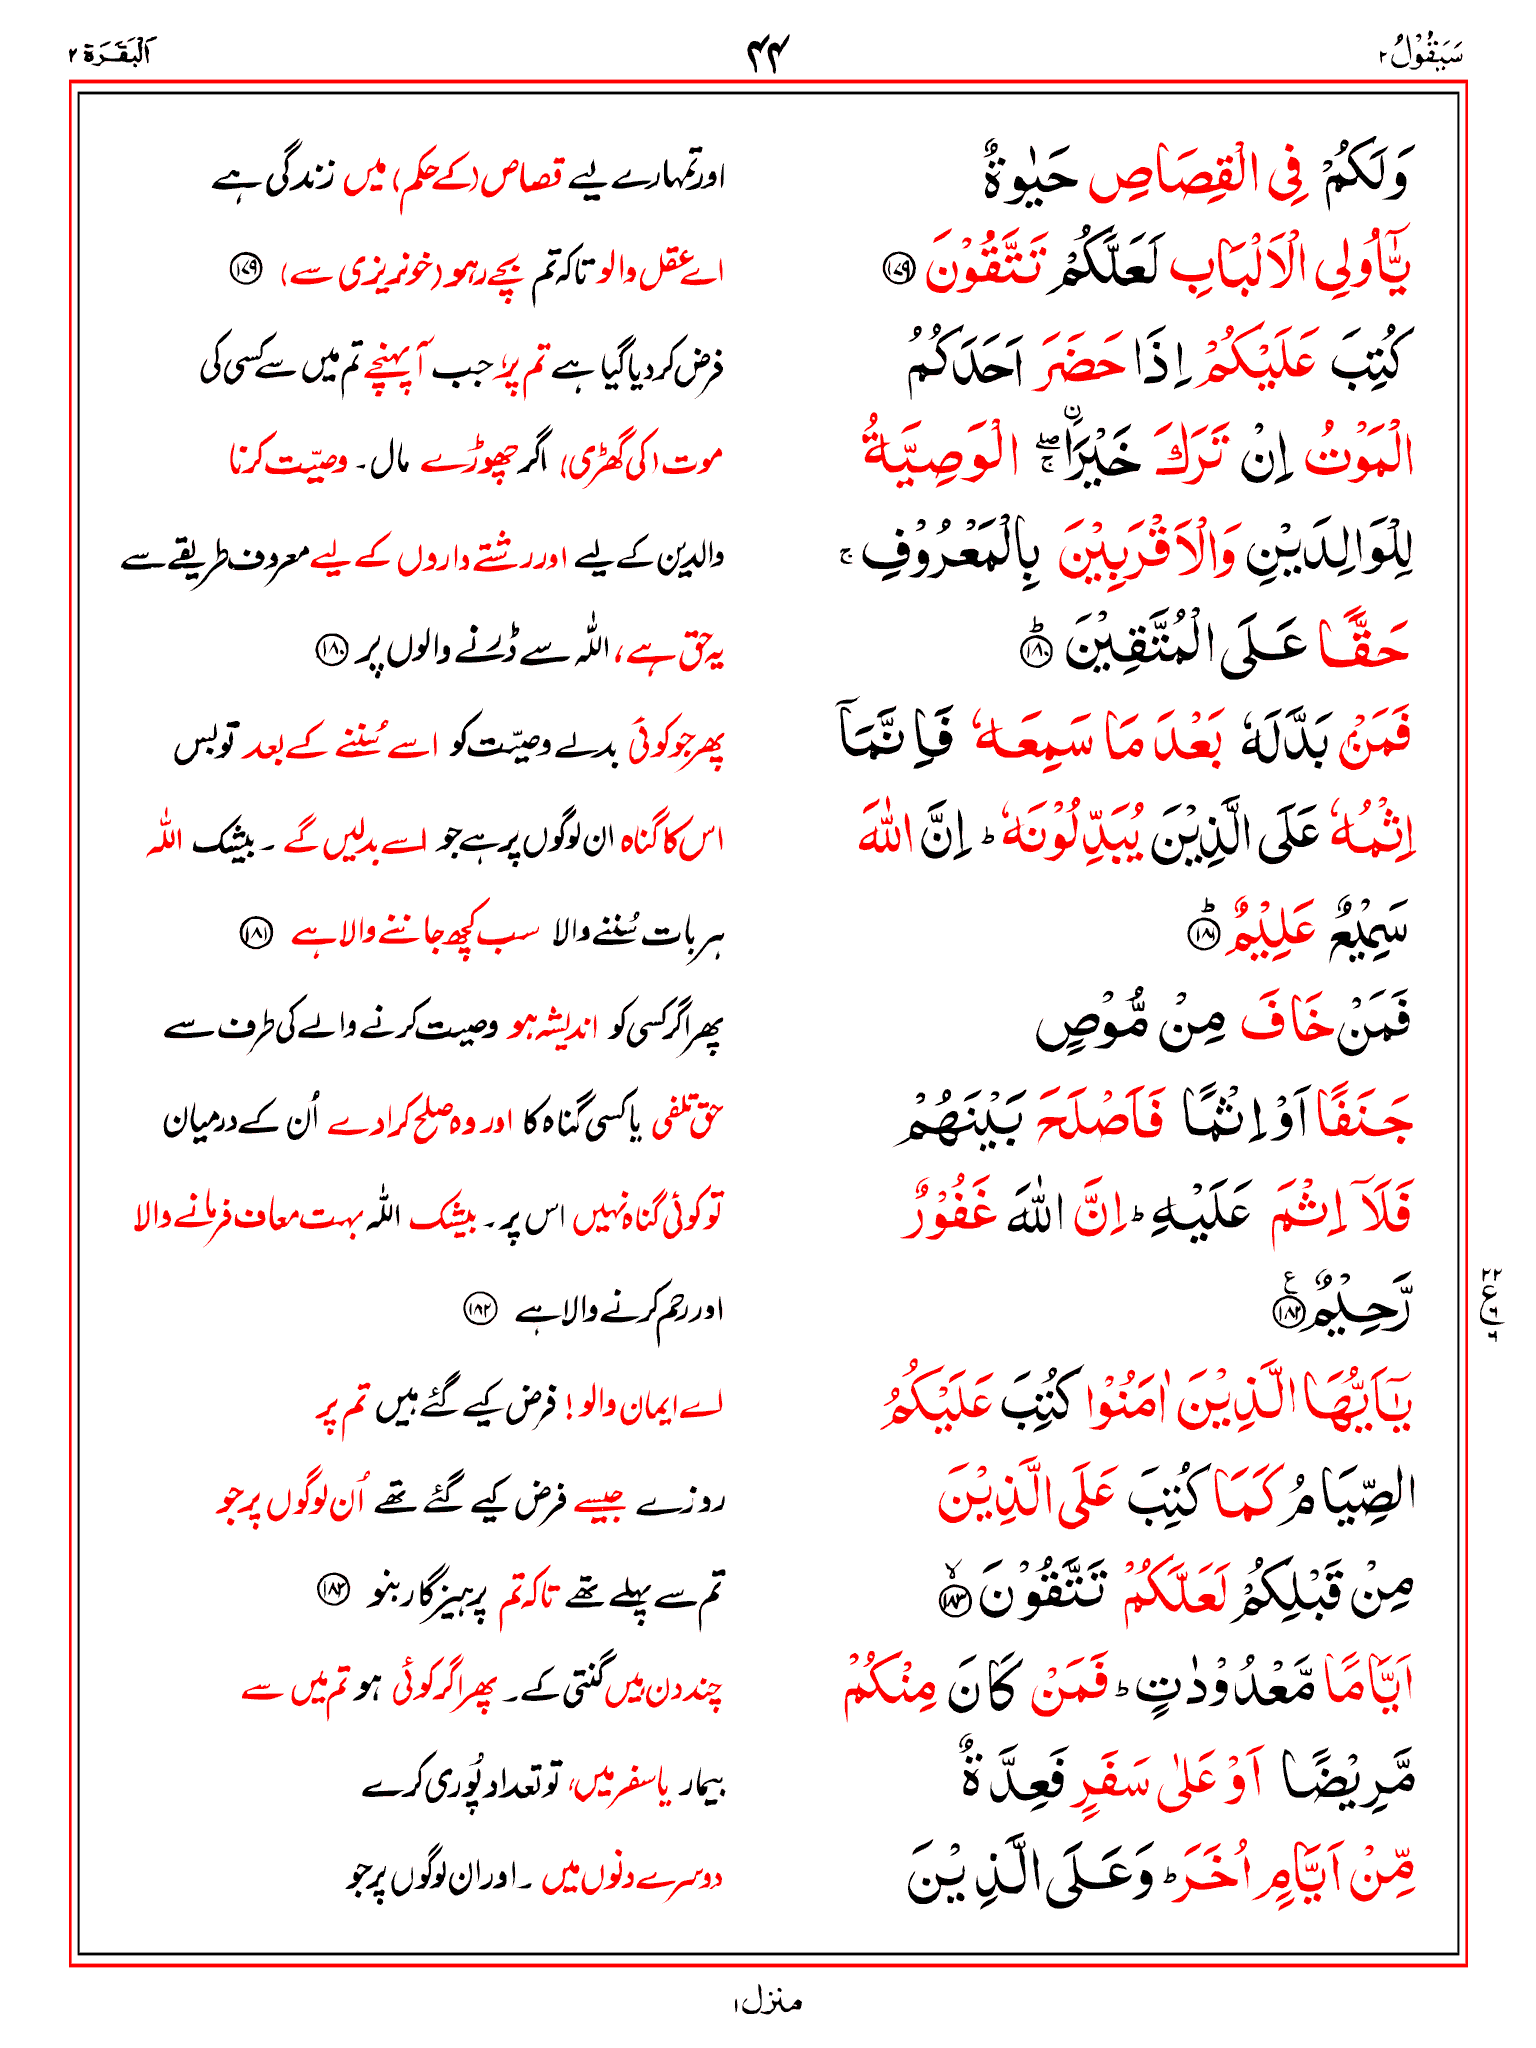 سَيَقُوْلُ ٢ ۴۴ اَلْبَقَرَة ٢
وَلَكُمْ فِى الْقِصَاصِ حَيٰوةٌ اور تمہارے لیے قصاص (کے حکم) میں زندگی ہے
يّٰۤاُولِى الْاَلْبَابِ لَعَلَّكُمْ تَتَّقُوْنَ ۝١٧٩ اے عقل والو تاکہ تم بچے رہو (خونریزی سے) ۝١٧٩
كُتِبَ عَلَيْكُمْ اِذَا حَضَرَ اَحَدَكُمُ فرض کر دیا گیا ہے تم پر جب آ پہنچے تم میں سے کسی کی
الْمَوْتُ اِنْ تَرَكَ خَيْرَا ۖۚ الْوَصِيَّةُ موت (کی گھڑی) اگر چھوڑے مال۔ وصیّت کرنا
لِلْوَالِدَيْنِ وَالْاَقْرَبِيْنَ بِالْمَعْرُوْفِ ۚ والدین کے لیے اور رشتے داروں کے لیے معروف طریقے سے
حَقًّا عَلَى الْمُتَّقِيْنَ ؕ۝١٨٠ یہ حق ہے، اللہ سے ڈرنے والوں پر ۝١٨٠
فَمَنْۢ بَدَّلَهٗ بَعْدَ مَا سَمِعَهٗ فَاِنَّمَاۤ پھر جو کوئی بدلے وصیّت کو اسے سُننے کے بعد تو بس
اِثْمُهٗ عَلَى الَّذِيْنَ يُبَدِّلُوْنَهٗ ؕ اِنَّ اللّٰهَ اس کا گناہ ان لوگوں پر ہے جو اسے بدلیں گے ۔ بیشک اللہ
سَمِيْعٌ عَلِيْمٌ ؕ۝١٨١ ہر بات سُننے والا سب کچھ جاننے والا ہے ۝١٨١
فَمَنْ خَافَ مِنْ مُّوْصٍ پھر اگر کسی کو اندیشہ ہو وصیت کرنے والے کی طرف سے
جَنَفًا اَوْ اِثْمًا فَاَصْلَحَ بَيْنَهُمْ حق تلفی یا کسی گناہ کا اور وہ صلح کرا دے اُن کے درمیان
فَلَاۤ اِثْمَ عَلَيْهِ ؕ اِنَّ اللّٰهَ غَفُوْرٌ تو کوئی گناہ نہیں اس پر۔ بیشک اللہ بہت معاف فرمانے والا
رَّحِيْمٌ ۝١٨٢ ع اور رحم کرنے والا ہے ۝١٨٢
٢٢ ع ٦ ٦
يٰۤاَيُّهَا الَّذِيْنَ اٰمَنُوْا كُتِبَ عَلَيْكُمُ اے ایمان والو! فرض کیے گئے ہیں تم پر
الصِّيَامُ كَمَا كُتِبَ عَلَى الَّذِيْنَ روزے جیسے فرض کیے گئے تھے اُن لوگوں پر جو
مِنْ قَبْلِكُمْ لَعَلَّكُمْ تَتَّقُوْنَ ۙ۝١٨٣ تم سے پہلے تھے تاکہ تم پرہیزگار بنو ۝١٨٣
اَيَّامًا مَّعْدُوْدٰتٍ ؕ فَمَنْ كَانَ مِنْكُمْ چند دن ہیں گنتی کے۔ پھر اگر کوئی ہو تم میں سے
مَّرِيْضًا اَوْ عَلٰى سَفَرٍ فَعِدَّةٌ بیمار یا سفر میں، تو تعداد پُوری کرے
مِّنْ اَيَّامٍ اُخَرَ ؕ وَعَلَى الَّذِيْنَ دوسرے دنوں میں ۔ اور ان لوگوں پر جو
منزل ١